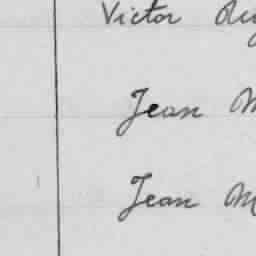 Victor
Jean M
Jean M